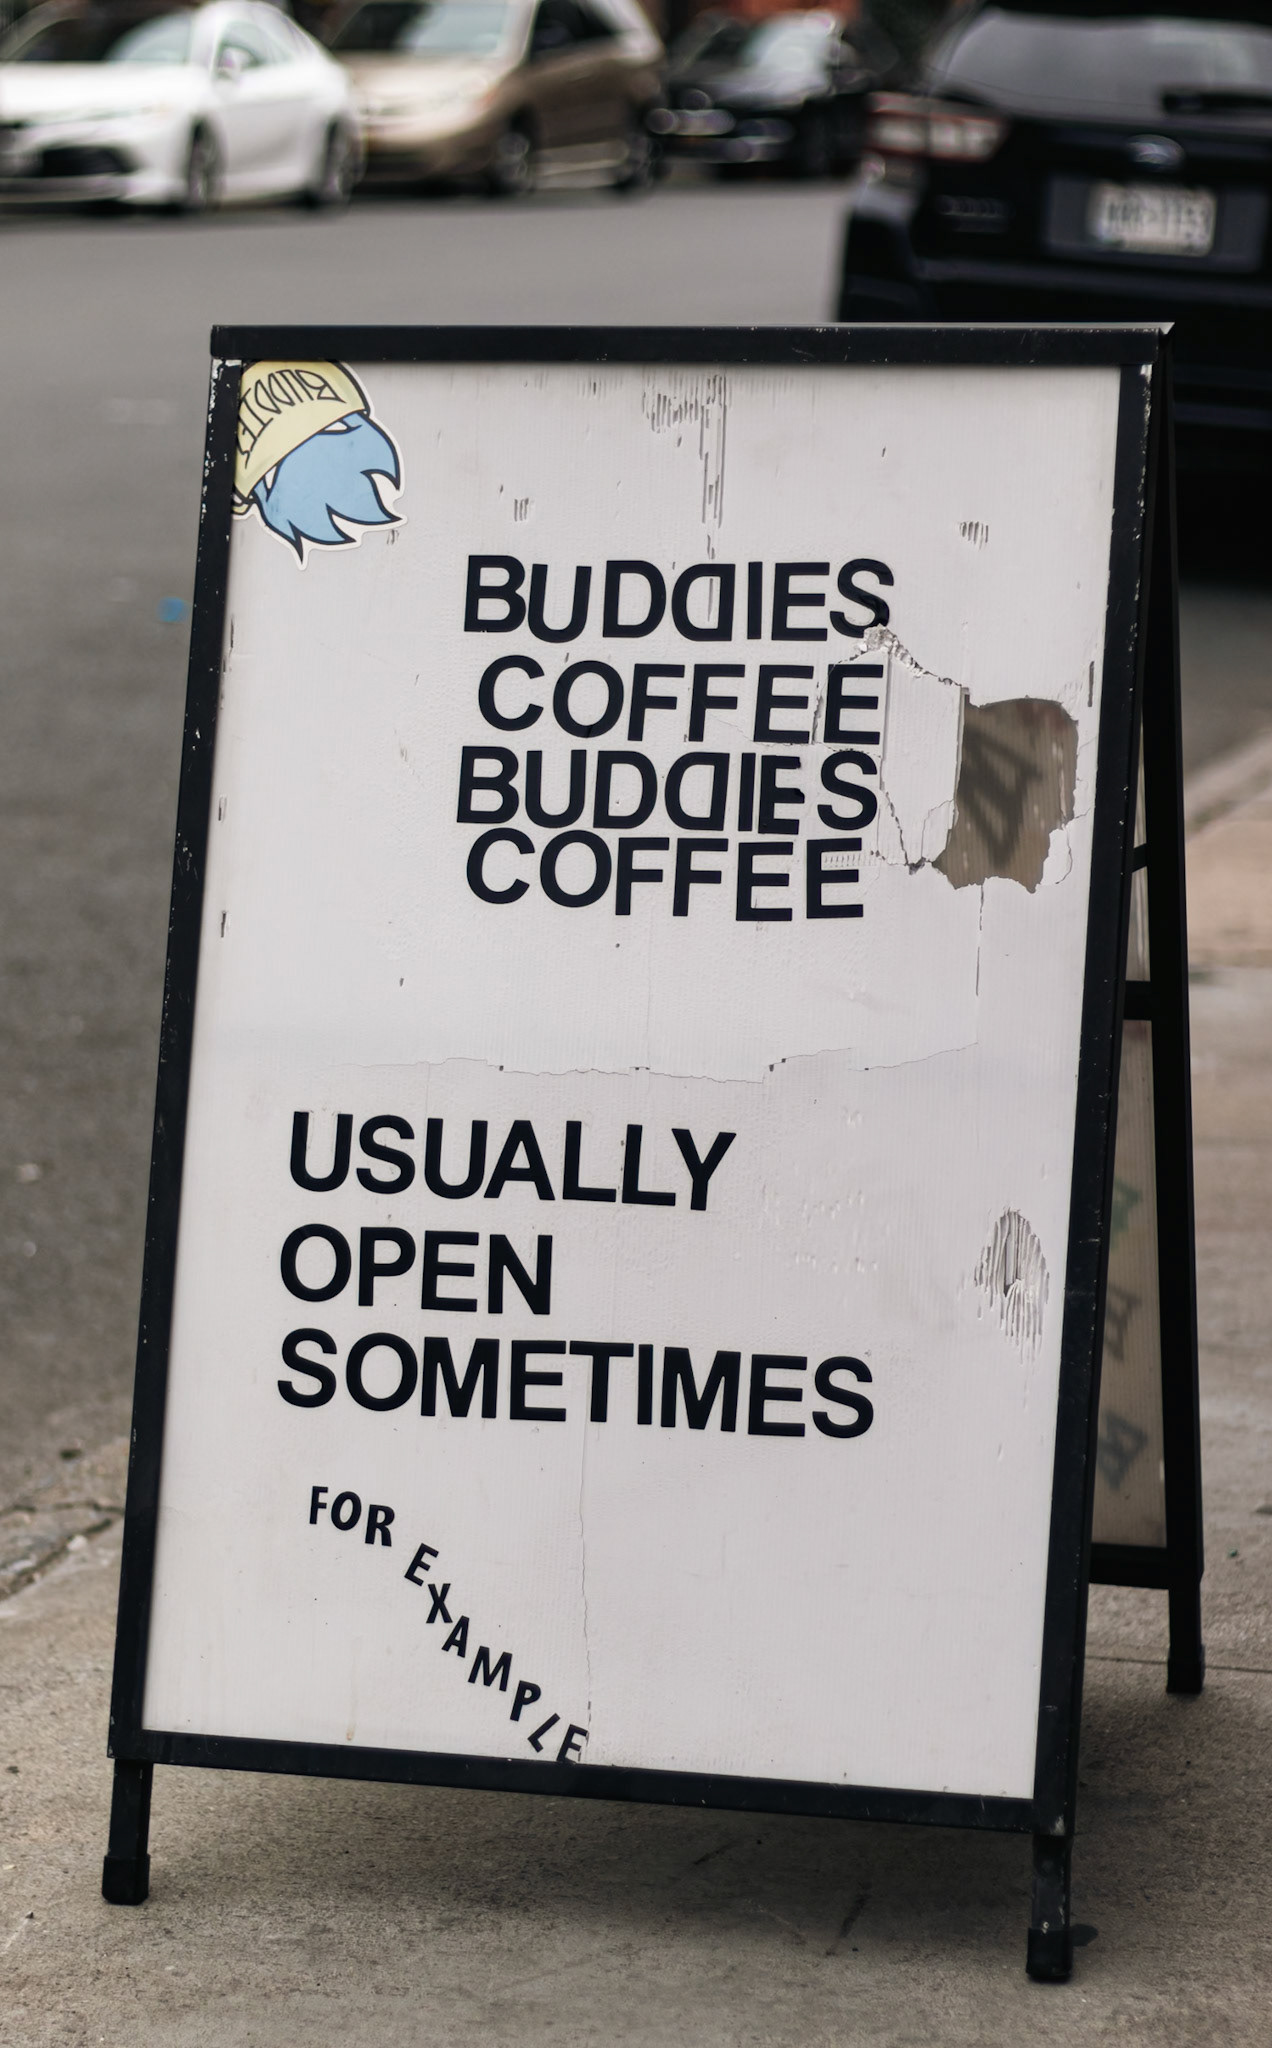 BUDDIES
BUDDIES
COFFEE
BUDDIES
COFFEE
USUALLY
OPEN
SOMETIMES
FOR EXAMPLE